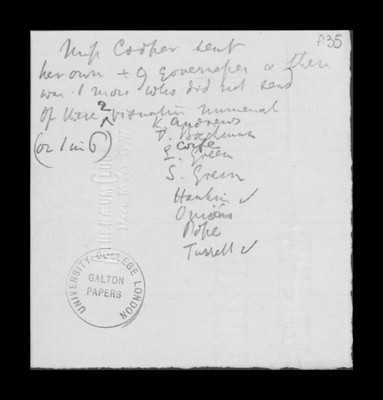 A35
Miss Cooper sent
her own + 9 governesses & there
was 1 more who did not send
Of these 2 visualise numeral
(or 1 in 5)
K Andrews
D. Backman
E Cooke
E. Green
S. Green
Hankin ✓
Onions
Pope
Turrell ✓
UNIVERSITY COLLEGE LONDON
GALTON
PAPERS